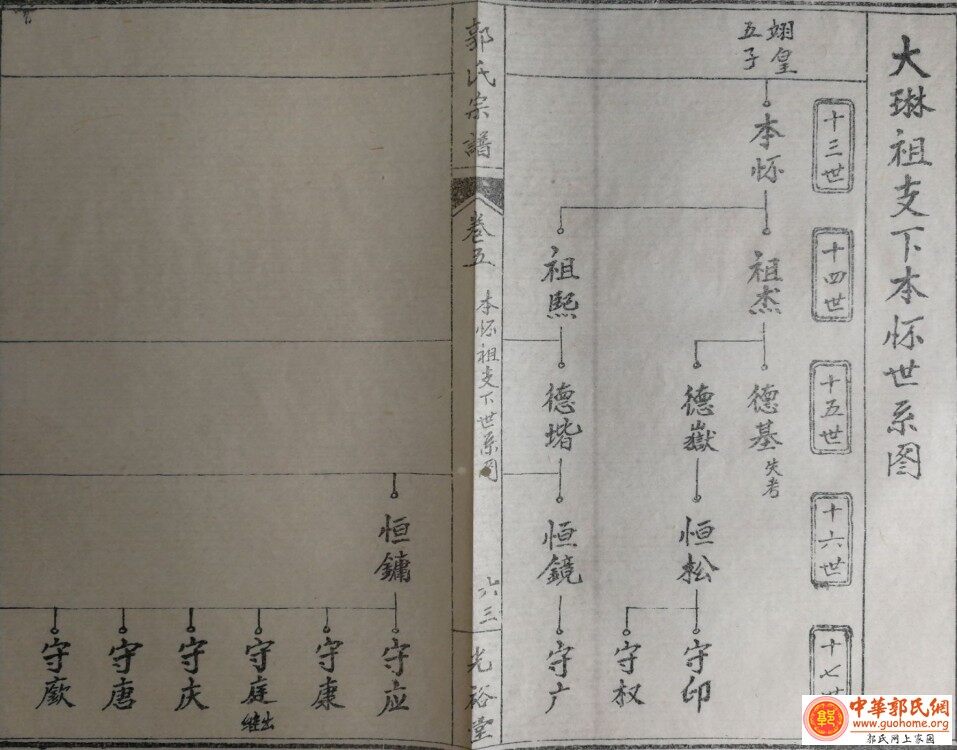 大琳祖支下本怀世系图
十三世
十四世
十五世
十六世
十七世
翊皇
五子
本怀
祖杰
祖熙
德基 失考
德嶽
德堦
恒松
恒鏡
守印
守权
守广
郭氏宗譜
卷五
本怀祖支下世系图
六三
光裕堂
恒鏞
守应
守康
守庭 继出
守庆
守唐
守廒
中華郭氏網
www.guohome.org
郭氏网上家園